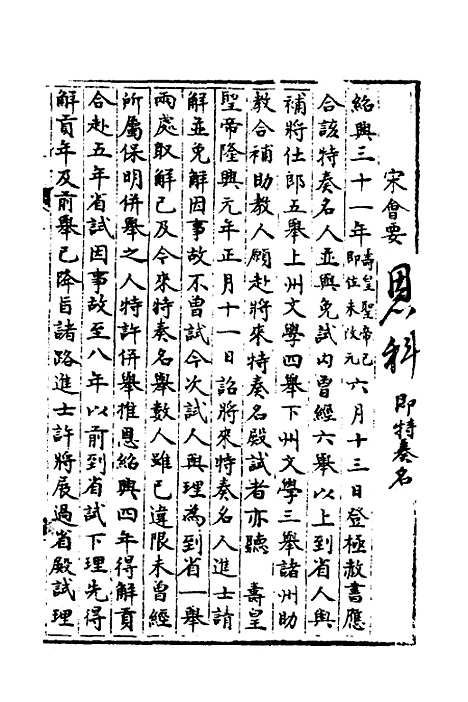 宋會要
恩科 即特奏名
紹興三十一年壽皇聖帝已即位未改元六月十三日登極赦書應
合該特奏名人並與免試內曾經六舉以上到省人與
補將仕郎五舉上州文學四舉下州文學三舉諸州助
教合補助教人願赴將來特奏名殿試者亦聽 壽皇
聖帝隆興元年正月十一日詔將來特奏名人進士請
解並免解因事故不曾試今次試人與理為到省一舉
兩處取解已及今來特奏名舉數人雖已違限未曾經
所屬保明併舉之人特許併舉推恩紹興四年得解貢
合赴五年省試因事故至八年以前到省試下理先得
解貢年及前舉已降旨諸路進士許將展過省殿試理